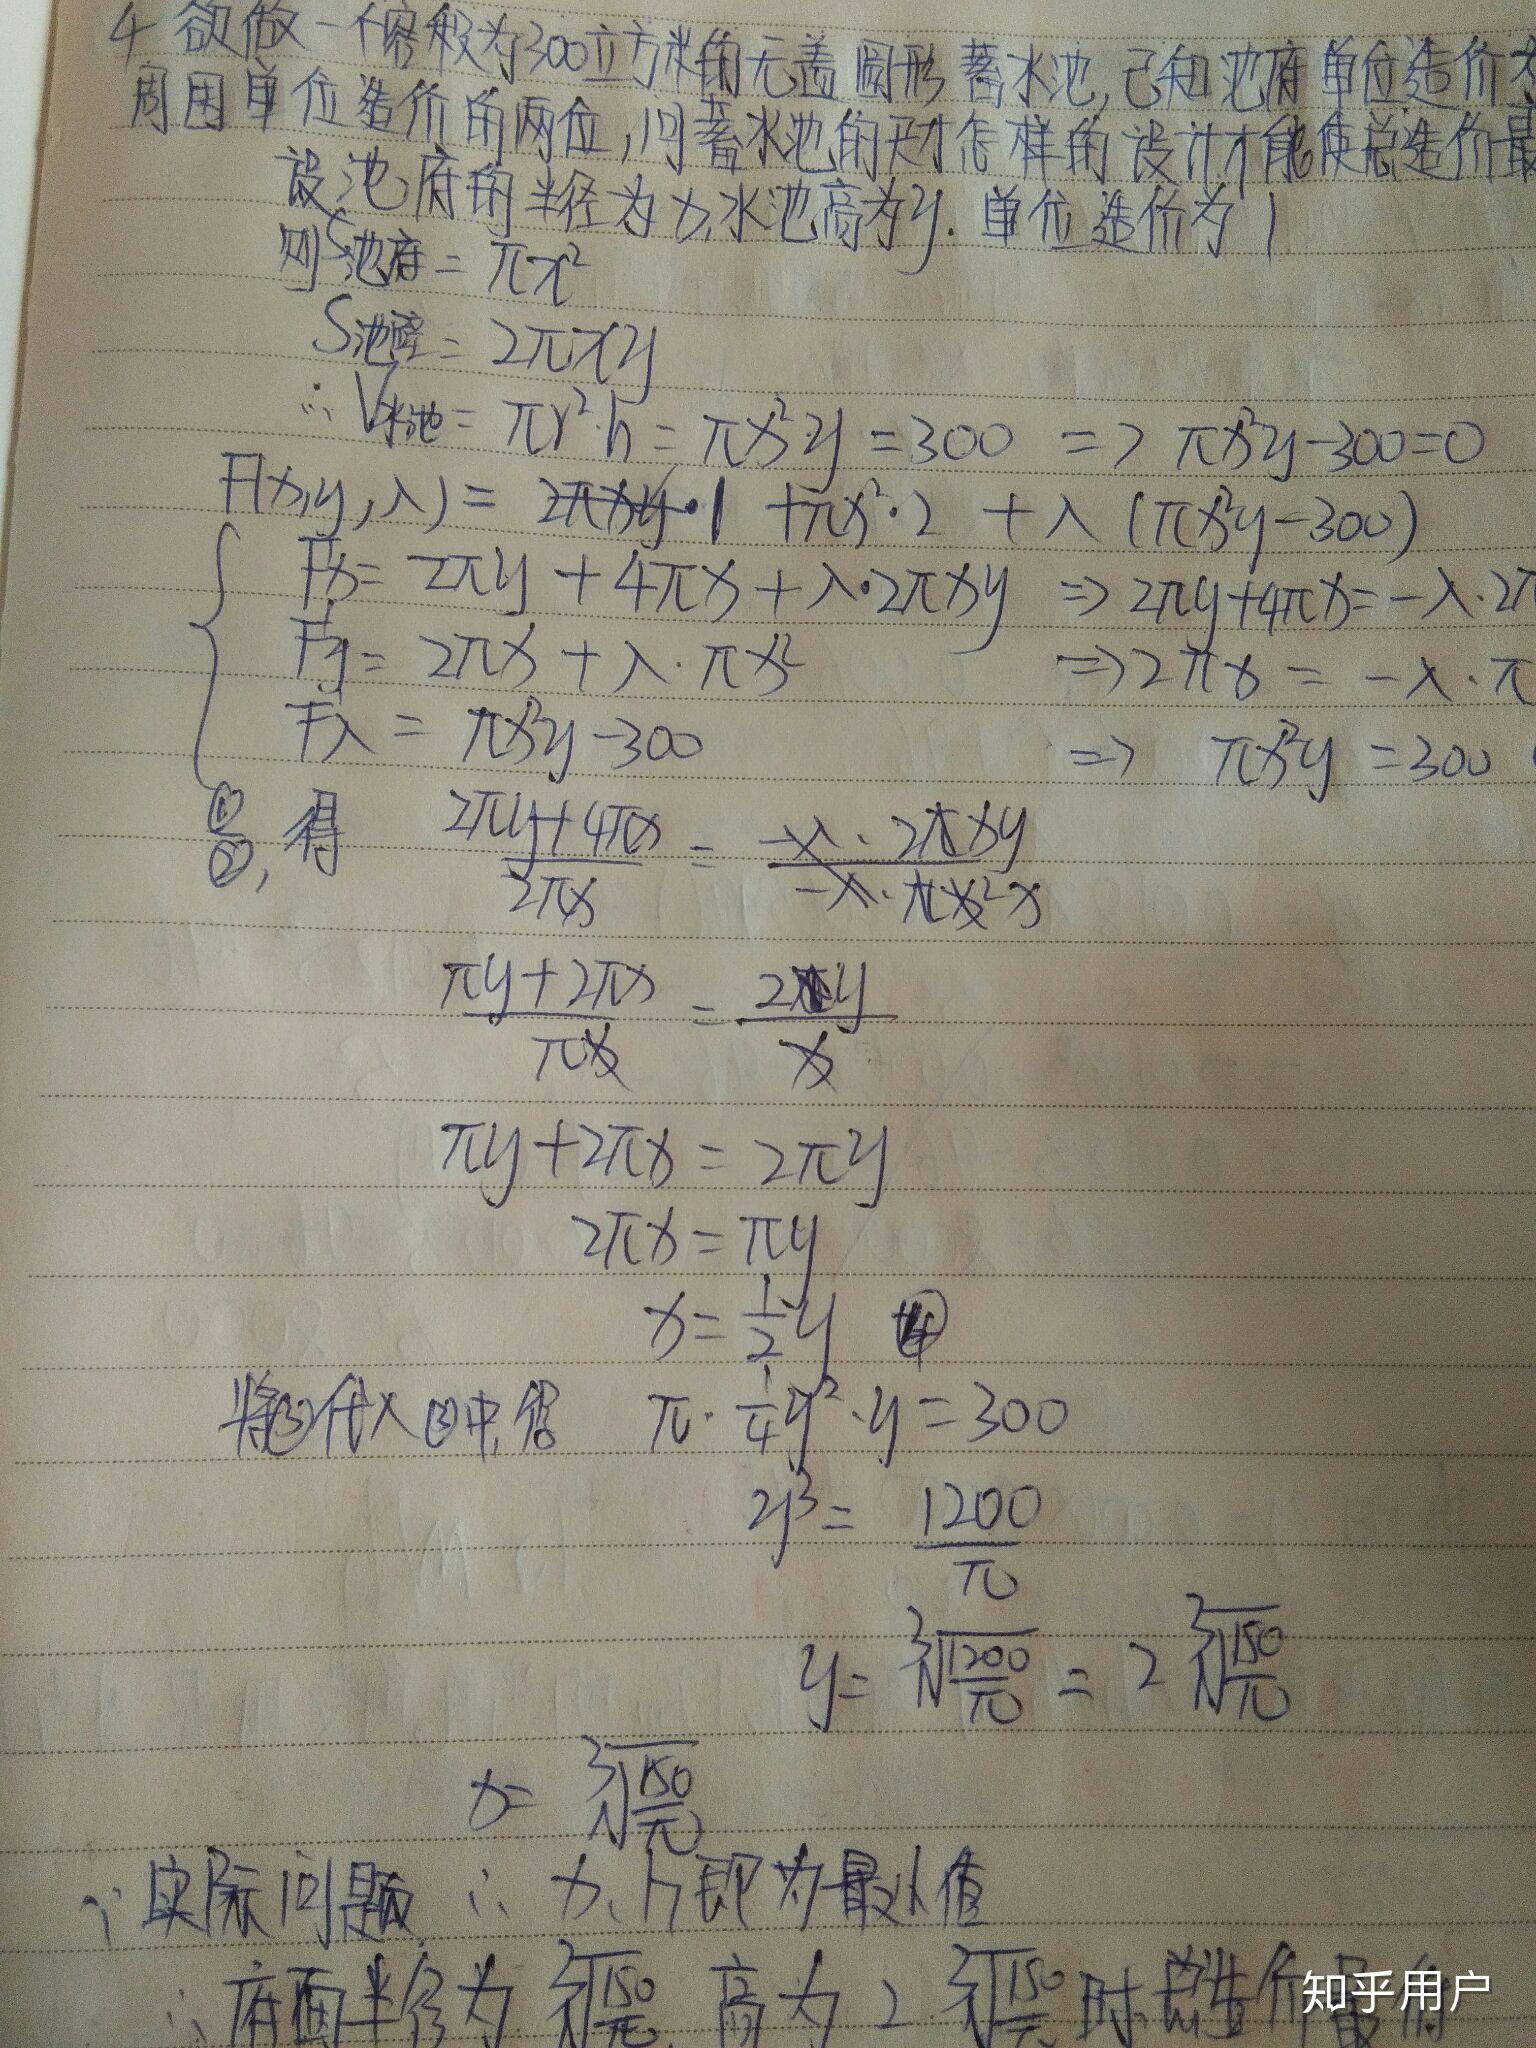 4 欲做一个容积为300立方米的无盖圆形蓄水池,已知池底单位造价为
周围单位造价的两位,问蓄水池的尺寸怎样的设计才能使总造价最
设池底的半径为x,水池高为y.单位造价为1
则S池底=πx²
S池壁=2πxy
∴V水池=πr²·h=πx²y=300 => πx²y-300=0
F(x,y,λ)=2πxy·1+πx²·2+λ(πx²y-300)
Fx=2πy+4πx+λ·2πxy =>2πy+4πx=-λ·2π
Fy=2πx+λ·πx² =>2πx=-λ·π
Fλ=πx²y-300 => πx²y=300
①/②,得 (2πy+4πx)/(2πx)=(-λ·2πxy)/(-λ·πx²) x
(πy+2πx)/(πx)=2y/x
πy+2πx=2πy
2πx=πy
x=1/2y ④
将③代入②中,得 π·1/4y²·y=300
y³=1200/π
y=∛(1200/π)=2∛(150/π)
x=∛(150/π)
∵实际问题 ∴x、h即为最小值
∴底面半径为∛(150/π),高为2∛(150/π)时,总造价最低
知乎用户